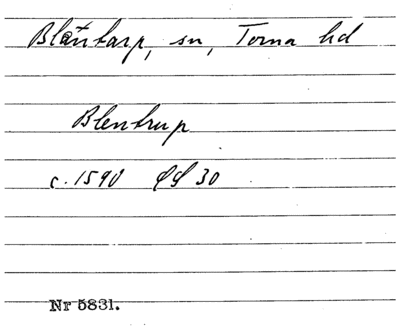 Blentarp, sn, Torna hd
Blentrup
c. 1590 LL 30
Nr 5831.